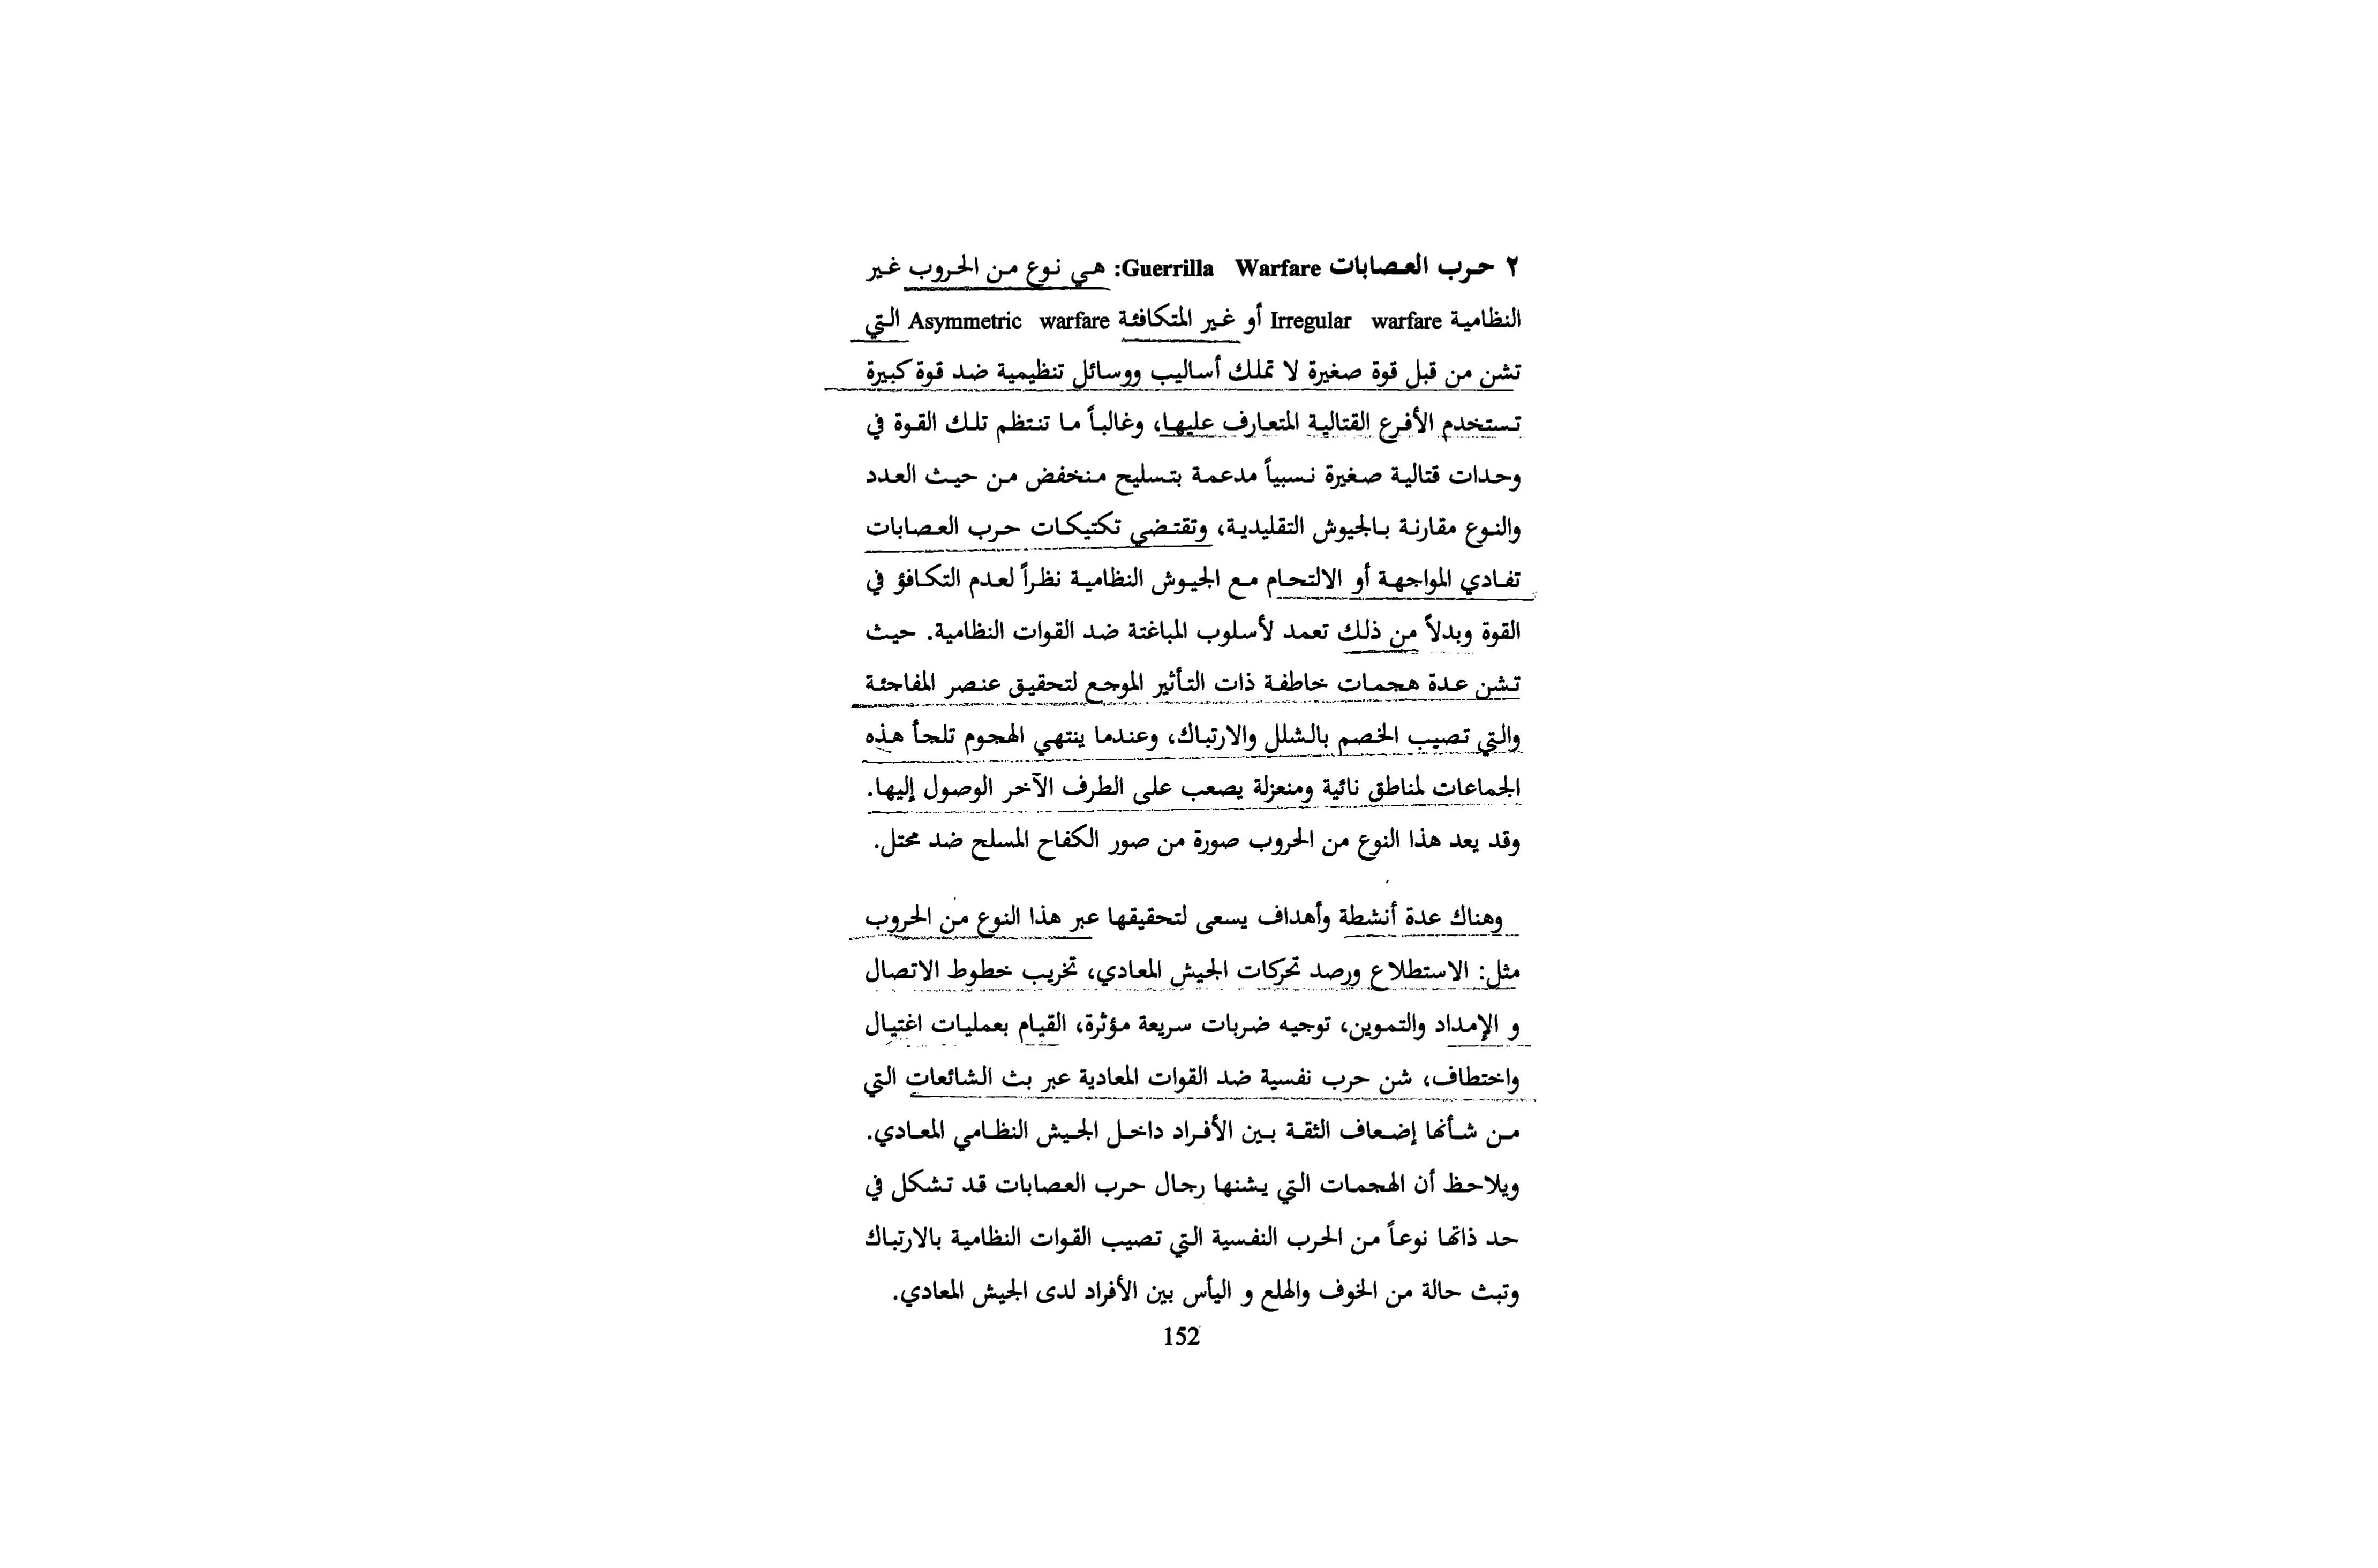 ٢ حرب العصابات Guerrilla Warfare: هي نوع من الحروب غير
النظامية Irregular warfare أو غير المتكافئة Asymmetric warfare التي
تشن من قبل قوة صغيرة لا تملك أساليب ووسائل تنظيمية ضد قوة كبيرة
تستخدم الأفرع القتالية المتعارف عليها، وغالباً ما تنتظم تلك القوة في
وحدات قتالية صغيرة نسبياً مدعمة بتسليح منخفض من حيث العدد
والنوع مقارنة بالجيوش التقليدية، وتقتضي تكتيكات حرب العصابات
تفادي المواجهة أو الالتحام مع الجيوش النظامية نظراً لعدم التكافؤ في
القوة وبدلاً من ذلك تعمد لأسلوب المباغتة ضد القوات النظامية. حيث
تشن عدة هجمات خاطفة ذات التأثير الموجع لتحقيق عنصر المفاجئة
والتي تصيب الخصم بالشلل والارتباك، وعندما ينتهي الهجوم تلجأ هذه
الجماعات لمناطق نائية ومنعزلة يصعب على الطرف الآخر الوصول إليها.
وقد يعد هذا النوع من الحروب صورة من صور الكفاح المسلح ضد محتل.
وهناك عدة أنشطة وأهداف يسعى لتحقيقها عبر هذا النوع من الحروب
مثل: الاستطلاع ورصد تحركات الجيش المعادي، تخريب خطوط الاتصال
و الإمداد والتموين، توجيه ضربات سريعة مؤثرة، القيام بعمليات اغتيال
واختطاف، شن حرب نفسية ضد القوات المعادية عبر بث الشائعات التي
من شأنها إضعاف الثقة بين الأفراد داخل الجيش النظامي المعادي.
ويلاحظ أن الهجمات التي يشنها رجال حرب العصابات قد تشكل في
حد ذاتها نوعاً من الحرب النفسية التي تصيب القوات النظامية بالارتباك
وتبث حالة من الخوف والهلع و اليأس بين الأفراد لدى الجيش المعادي.
152